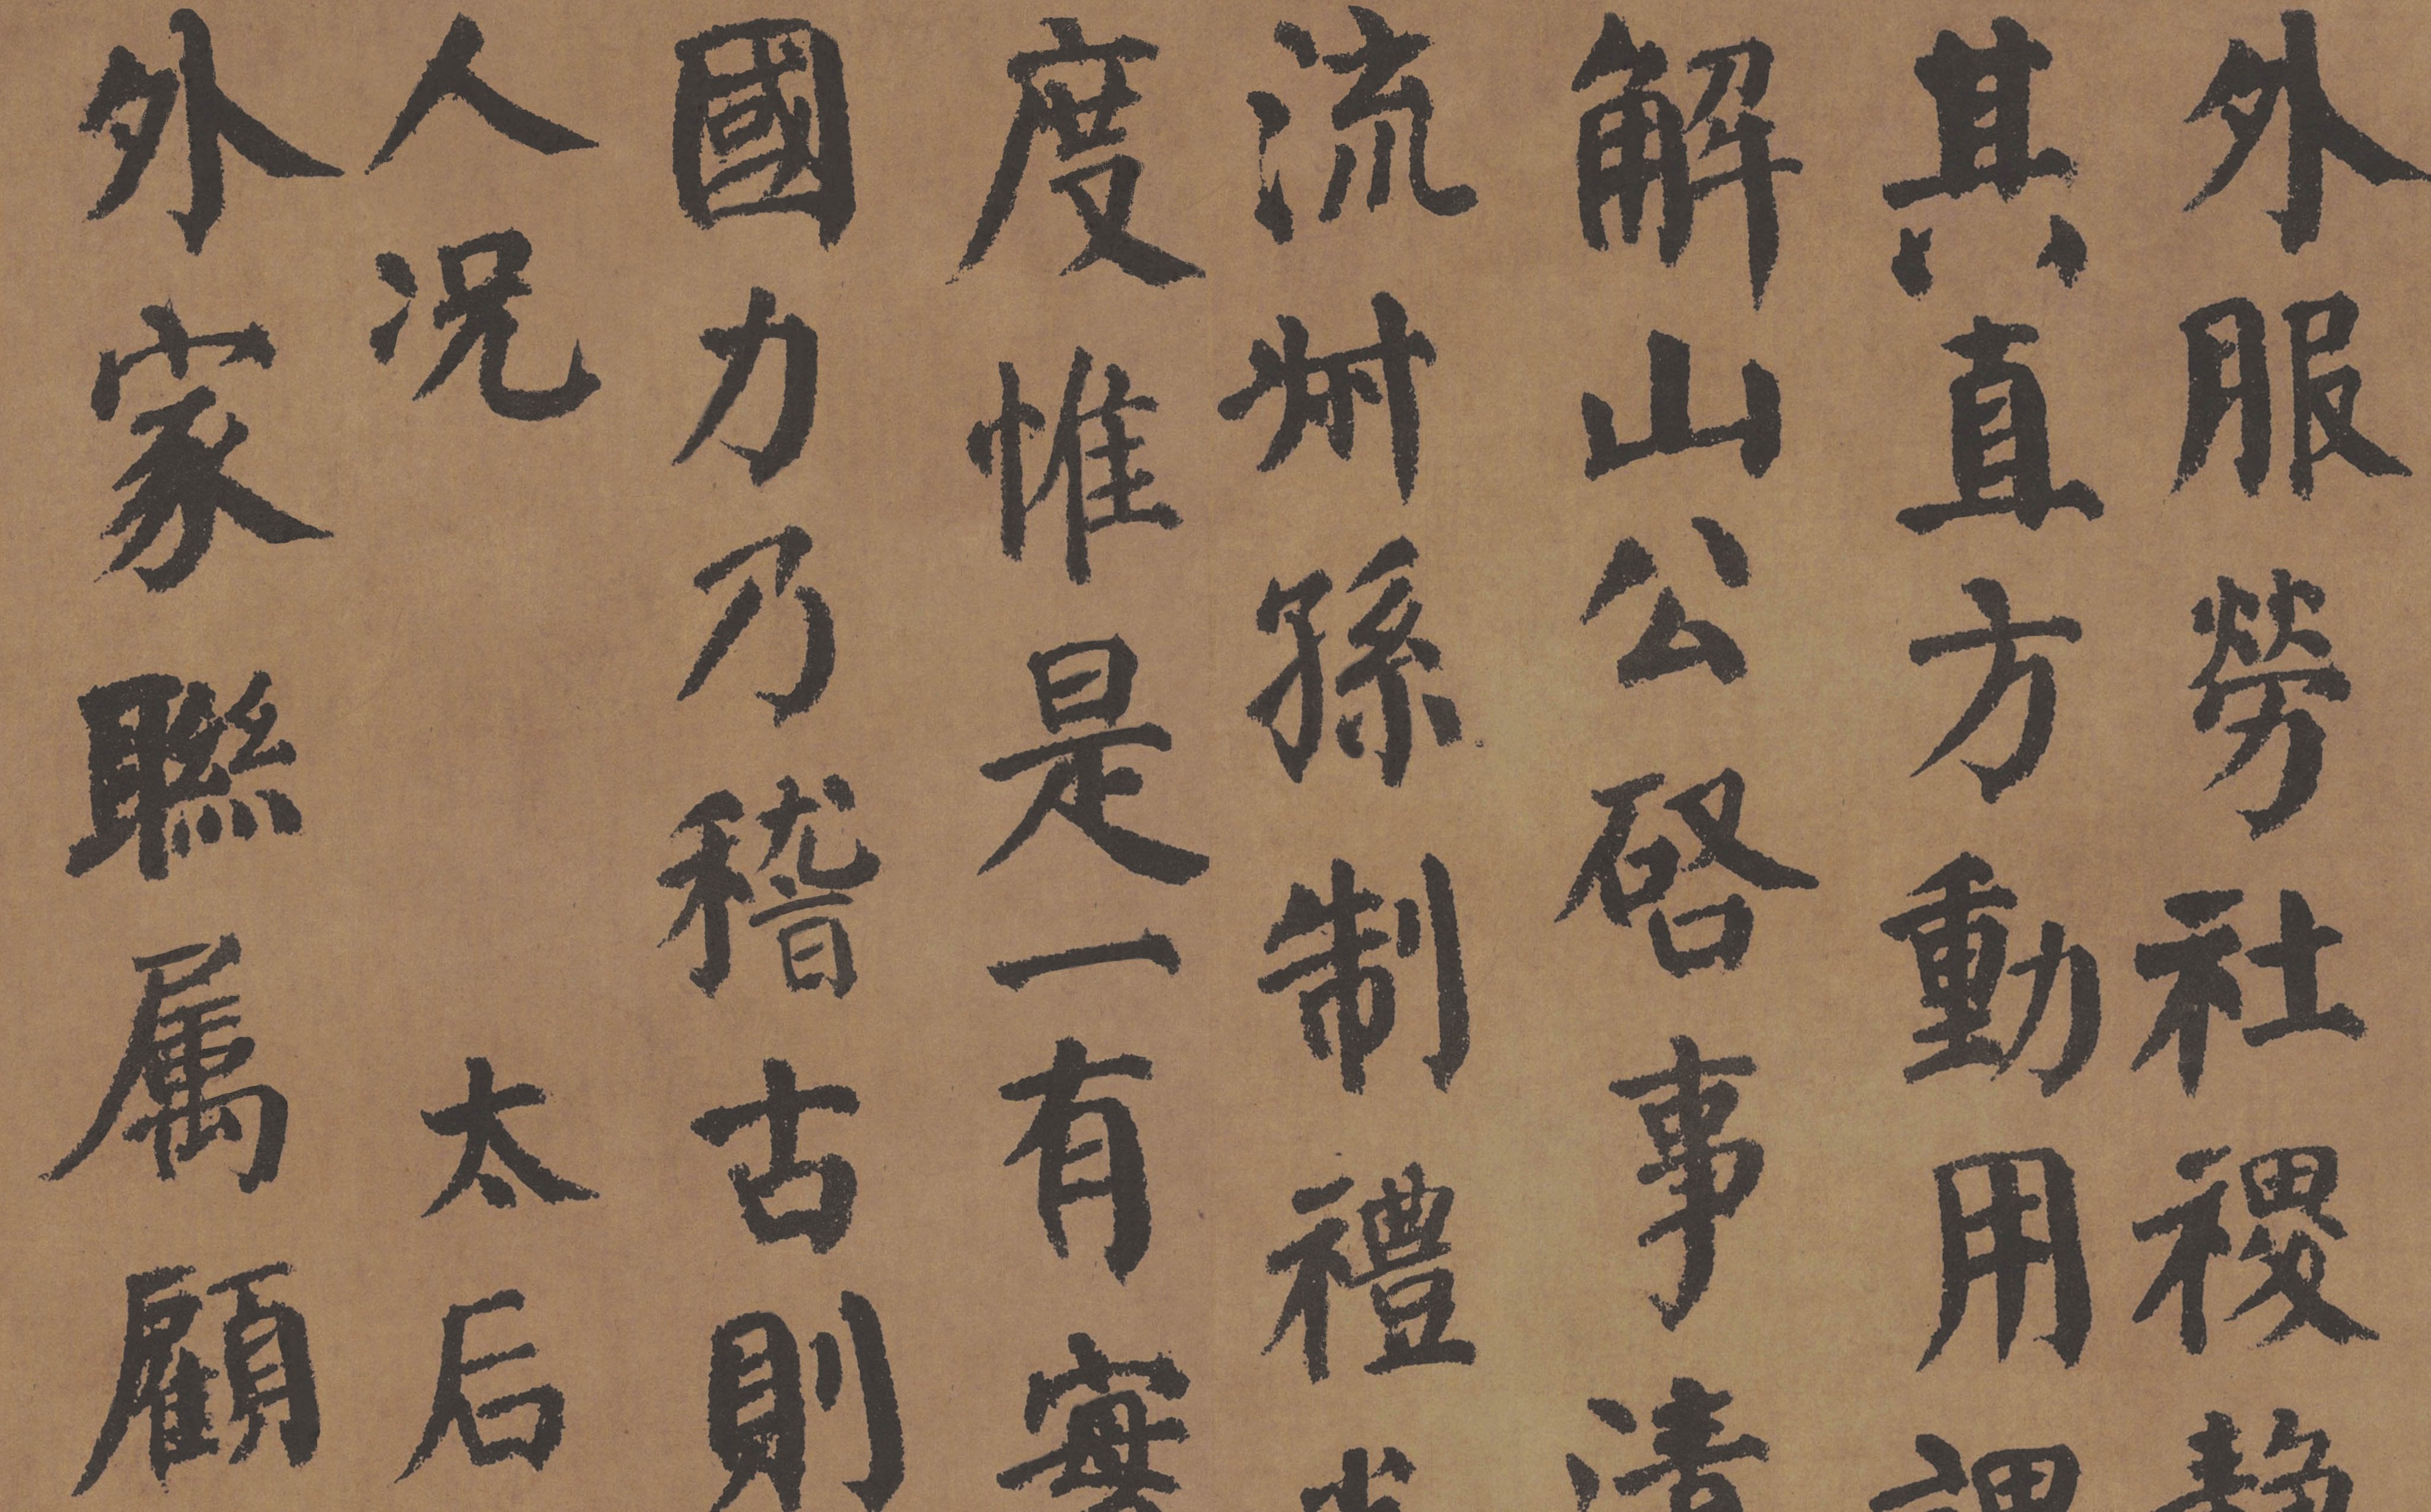 外服勞社稷静
其直方動用謂
解山公啓事清
流叔孫制禮光
度惟是一有寔
國力乃稽古則
人况太后
外家聯属顧